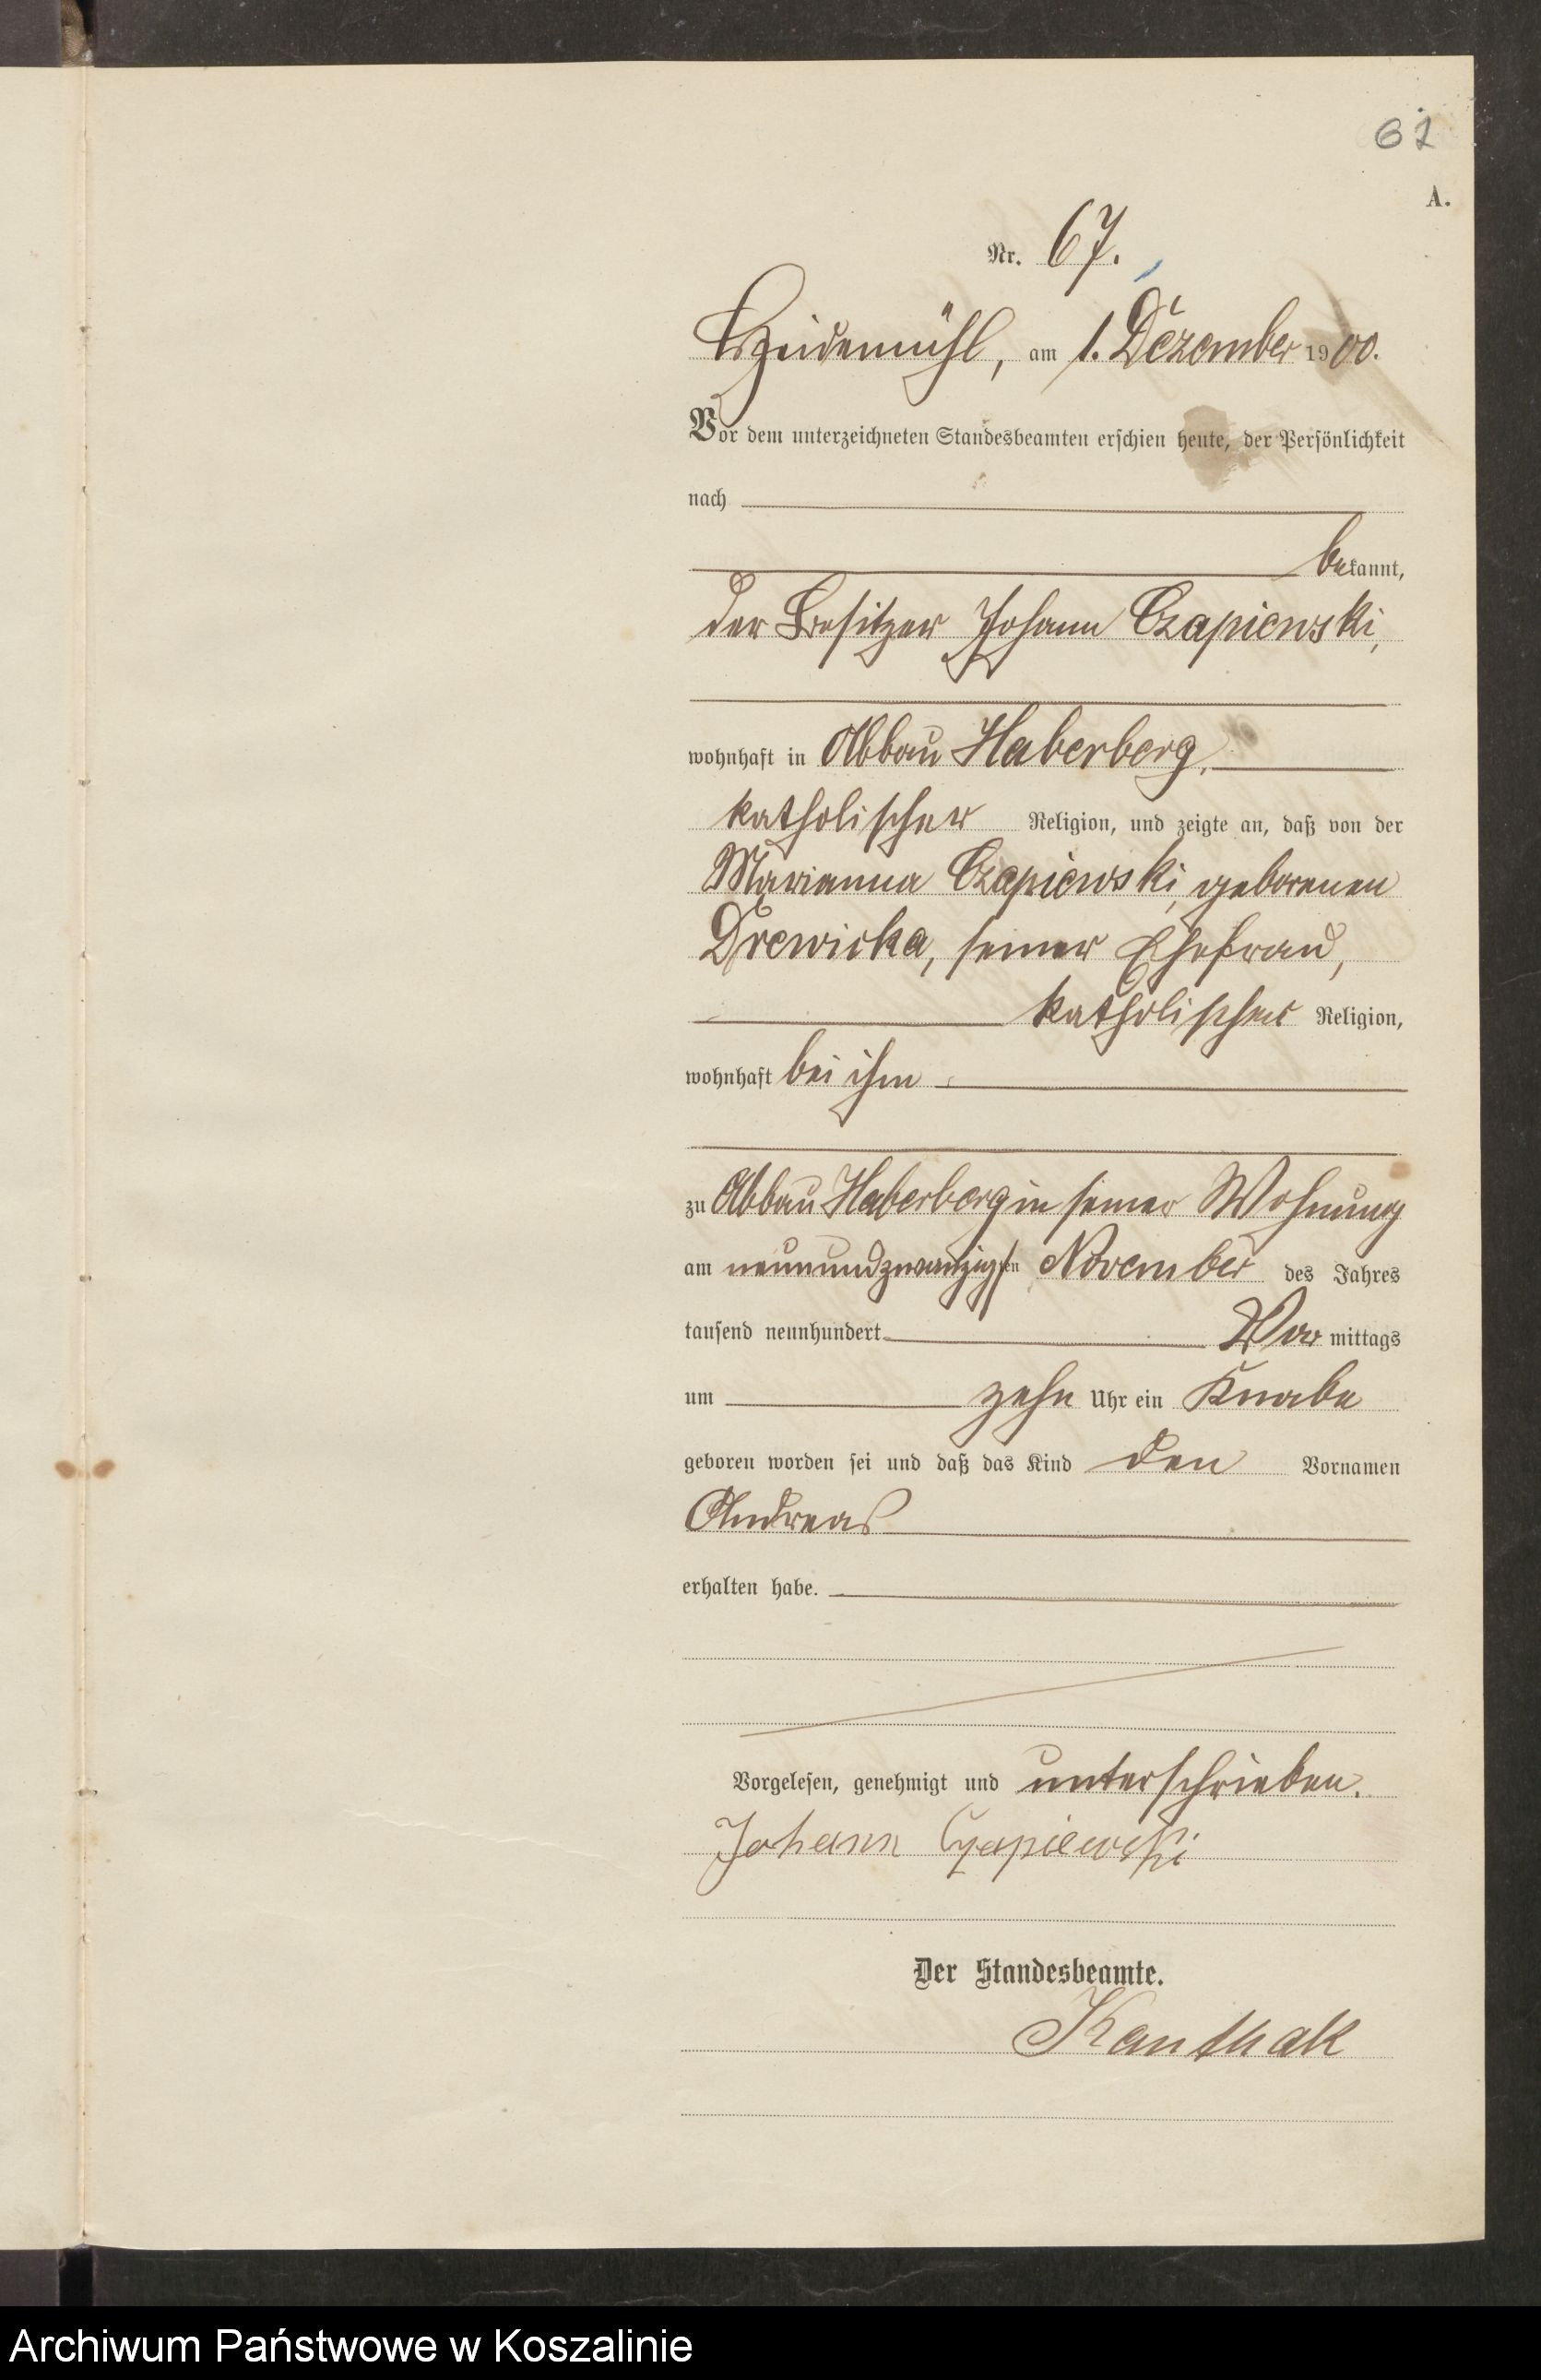 62
A.
Nr. 67.
Heidemühl, am 1. Dezember 1900.
Vor dem unterzeichneten Standesbeamten erschien heute, der Persönlichkeit
nach
bekannt,
der Besitzer Johann Czapiewski,
wohnhaft in Abbau Haberberg,
katholischer Religion, und zeigte an, daß von der
Marianna Czapiewski, geborenen
Drewicka, seiner Ehefrau,
katholischer Religion,
wohnhaft bei ihm
zu Abbau Haberberg in seiner Wohnung
am neunundzwanzigsten November des Jahres
tausend neunhundert Vor mittags
um zehn Uhr ein Knabe
geboren worden sei und daß das Kind den Vornamen
Andreas
erhalten habe.
Vorgelesen, genehmigt und unterschrieben.
Johann Czapiewski
Der Standesbeamte.
Kanthak
Archiwum Państwowe w Koszalinie